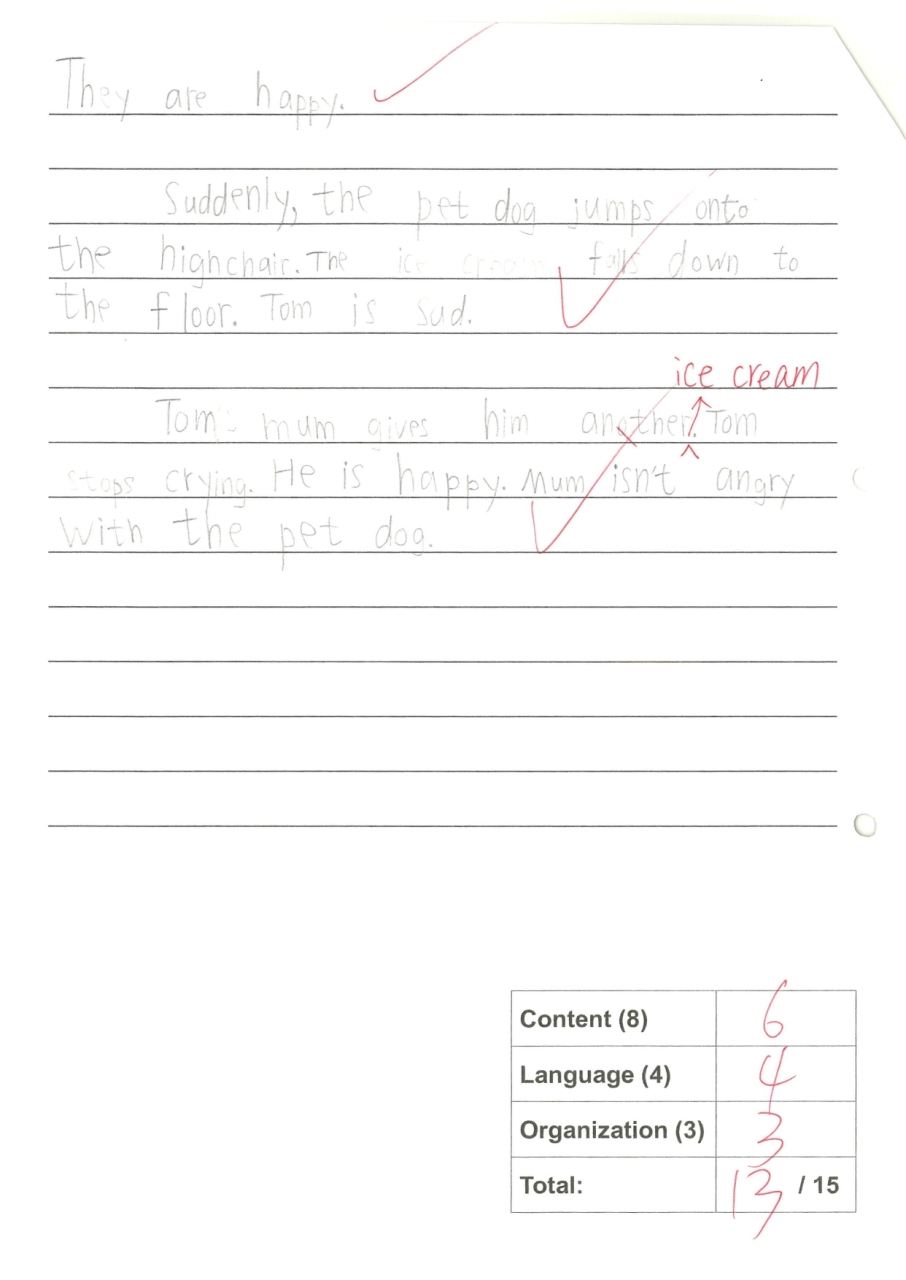 They are happy.
Suddenly, the pet dog jumps onto
the highchair. The ice cream falls down to
the floor. Tom is sad.
ice cream
Tom's mum gives him another. Tom
stops crying. He is happy. Mum isn't angry
with the pet dog.
Content (8) 6
Language (4) 4
Organization (3) 3
Total: 13 / 15